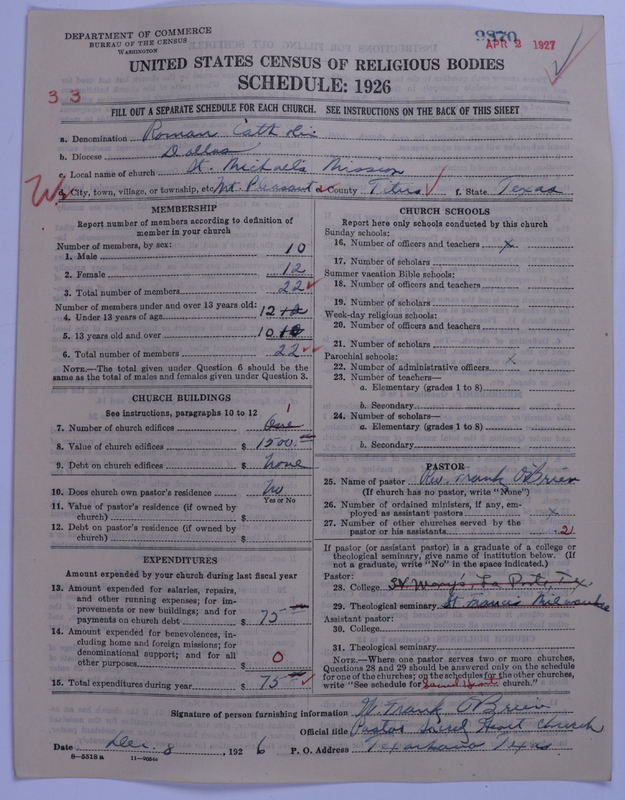 DEPARTMENT OF COMMERCE
BUREAU OF THE CENSUS
WASHINGTON
APR 2 1927
UNITED STATES CENSUS OF RELIGIOUS BODIES
SCHEDULE: 1926
3 3
FILL OUT A SEPARATE SCHEDULE FOR EACH CHURCH. SEE INSTRUCTIONS ON THE BACK OF THIS SHEET
a. Denomination Roman Catholic
b. Diocese Dallas
c. Local name of church St. Michaels Mission
d. City, town, village, or township, etc. Mt. Pleasant e. County Titus f. State Texas
MEMBERSHIP
Report number of members according to definition of
member in your church
Number of members, by sex:
1. Male 10
2. Female 12
3. Total number of members 22
Number of members under and over 13 years old:
4. Under 13 years of age 12
5. 13 years old and over 10
6. Total number of members 22
NOTE.—The total given under Question 6 should be the
same as the total of males and females given under Question 3.
CHURCH BUILDINGS
See instructions, paragraphs 10 to 12
7. Number of church edifices One 1
8. Value of church edifices $ 1500.
9. Debt on church edifices $ None
10. Does church own pastor's residence No
Yes or No
11. Value of pastor's residence (if owned by
church) $
12. Debt on pastor's residence (if owned by
church) $
EXPENDITURES
Amount expended by your church during last fiscal year
13. Amount expended for salaries, repairs,
and other running expenses; for im-
provements or new buildings; and for
payments on church debt $ 75
14. Amount expended for benevolences, in-
cluding home and foreign missions; for
denominational support; and for all
other purposes $ 0
15. Total expenditures during year $ 75
CHURCH SCHOOLS
Report here only schools conducted by this church
Sunday schools:
16. Number of officers and teachers x
17. Number of scholars
Summer vacation Bible schools:
18. Number of officers and teachers
19. Number of scholars
Week-day religious schools:
20. Number of officers and teachers
21. Number of scholars
Parochial schools:
22. Number of administrative officers x
23. Number of teachers—
a. Elementary (grades 1 to 8)
b. Secondary
24. Number of scholars—
a. Elementary (grades 1 to 8)
b. Secondary
PASTOR
25. Name of pastor Rev. Frank O'Brien
(If church has no pastor, write "None")
26. Number of ordained ministers, if any, em-
ployed as assistant pastors x
27. Number of other churches served by the
pastor or his assistants 2
If pastor (or assistant pastor) is a graduate of a college or
theological seminary, give name of institution below. (If
not a graduate, write "No" in the space indicated.)
Pastor:
28. College St Mary's, La Porte, Tex
29. Theological seminary St Francis Milwaukee
Assistant pastor:
30. College
31. Theological seminary
NOTE.—Where one pastor serves two or more churches,
Questions 28 and 29 should be answered only on the schedule
for one of the churches; on the schedules for the other churches,
write "See schedule for Sacred Heart church."
Signature of person furnishing information W Frank O'Brien
Official title Pastor Sacred Heart Church
Date Dec. 8, 1926 P. O. Address Texarkana Texas
8—5518 a 11—9054